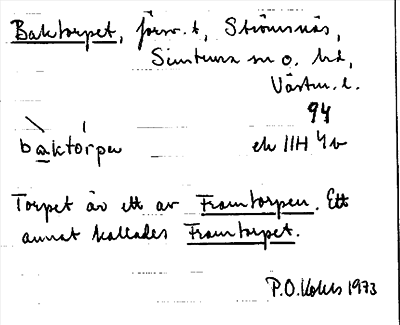 Baktorpet, förr. t. Strömsnäs,
Simtuna sn o. hd,
Västm. l.
94
baktórpen ek IIH 4v
Torpet är ett av Framtorpen. Ett
annat kallades Framtorpet.
P.O. 1973